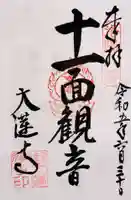 奉拝
令和五年六月三十日
十一面観音
大蓮寺